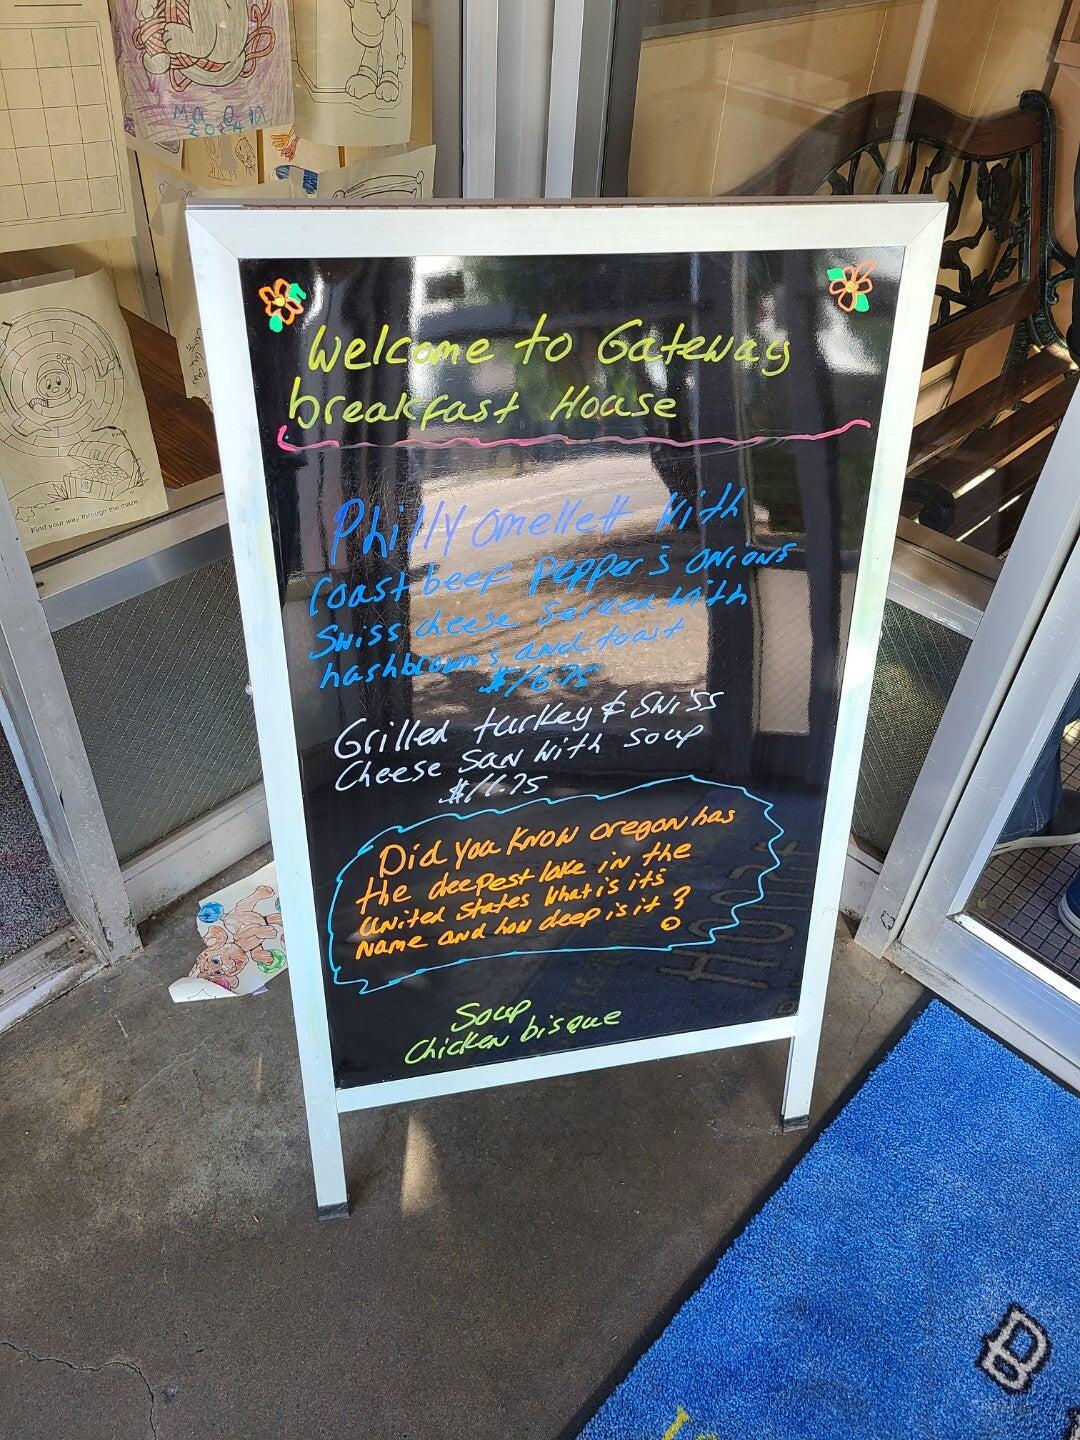 Ma l n
2024
Find your way through the maze.
Welcome to Gateway
breakfast House
Philly omellett with
roast beef pepper's onions
Swiss cheese served with
hashbrown's and toast
$16.75
Grilled turkey & Swiss
Cheese San with soup
$16.75
Did you know oregon has
the deepest lake in the
united states What is it's
Name and how deep is it?
Soup
Chicken bisque
B